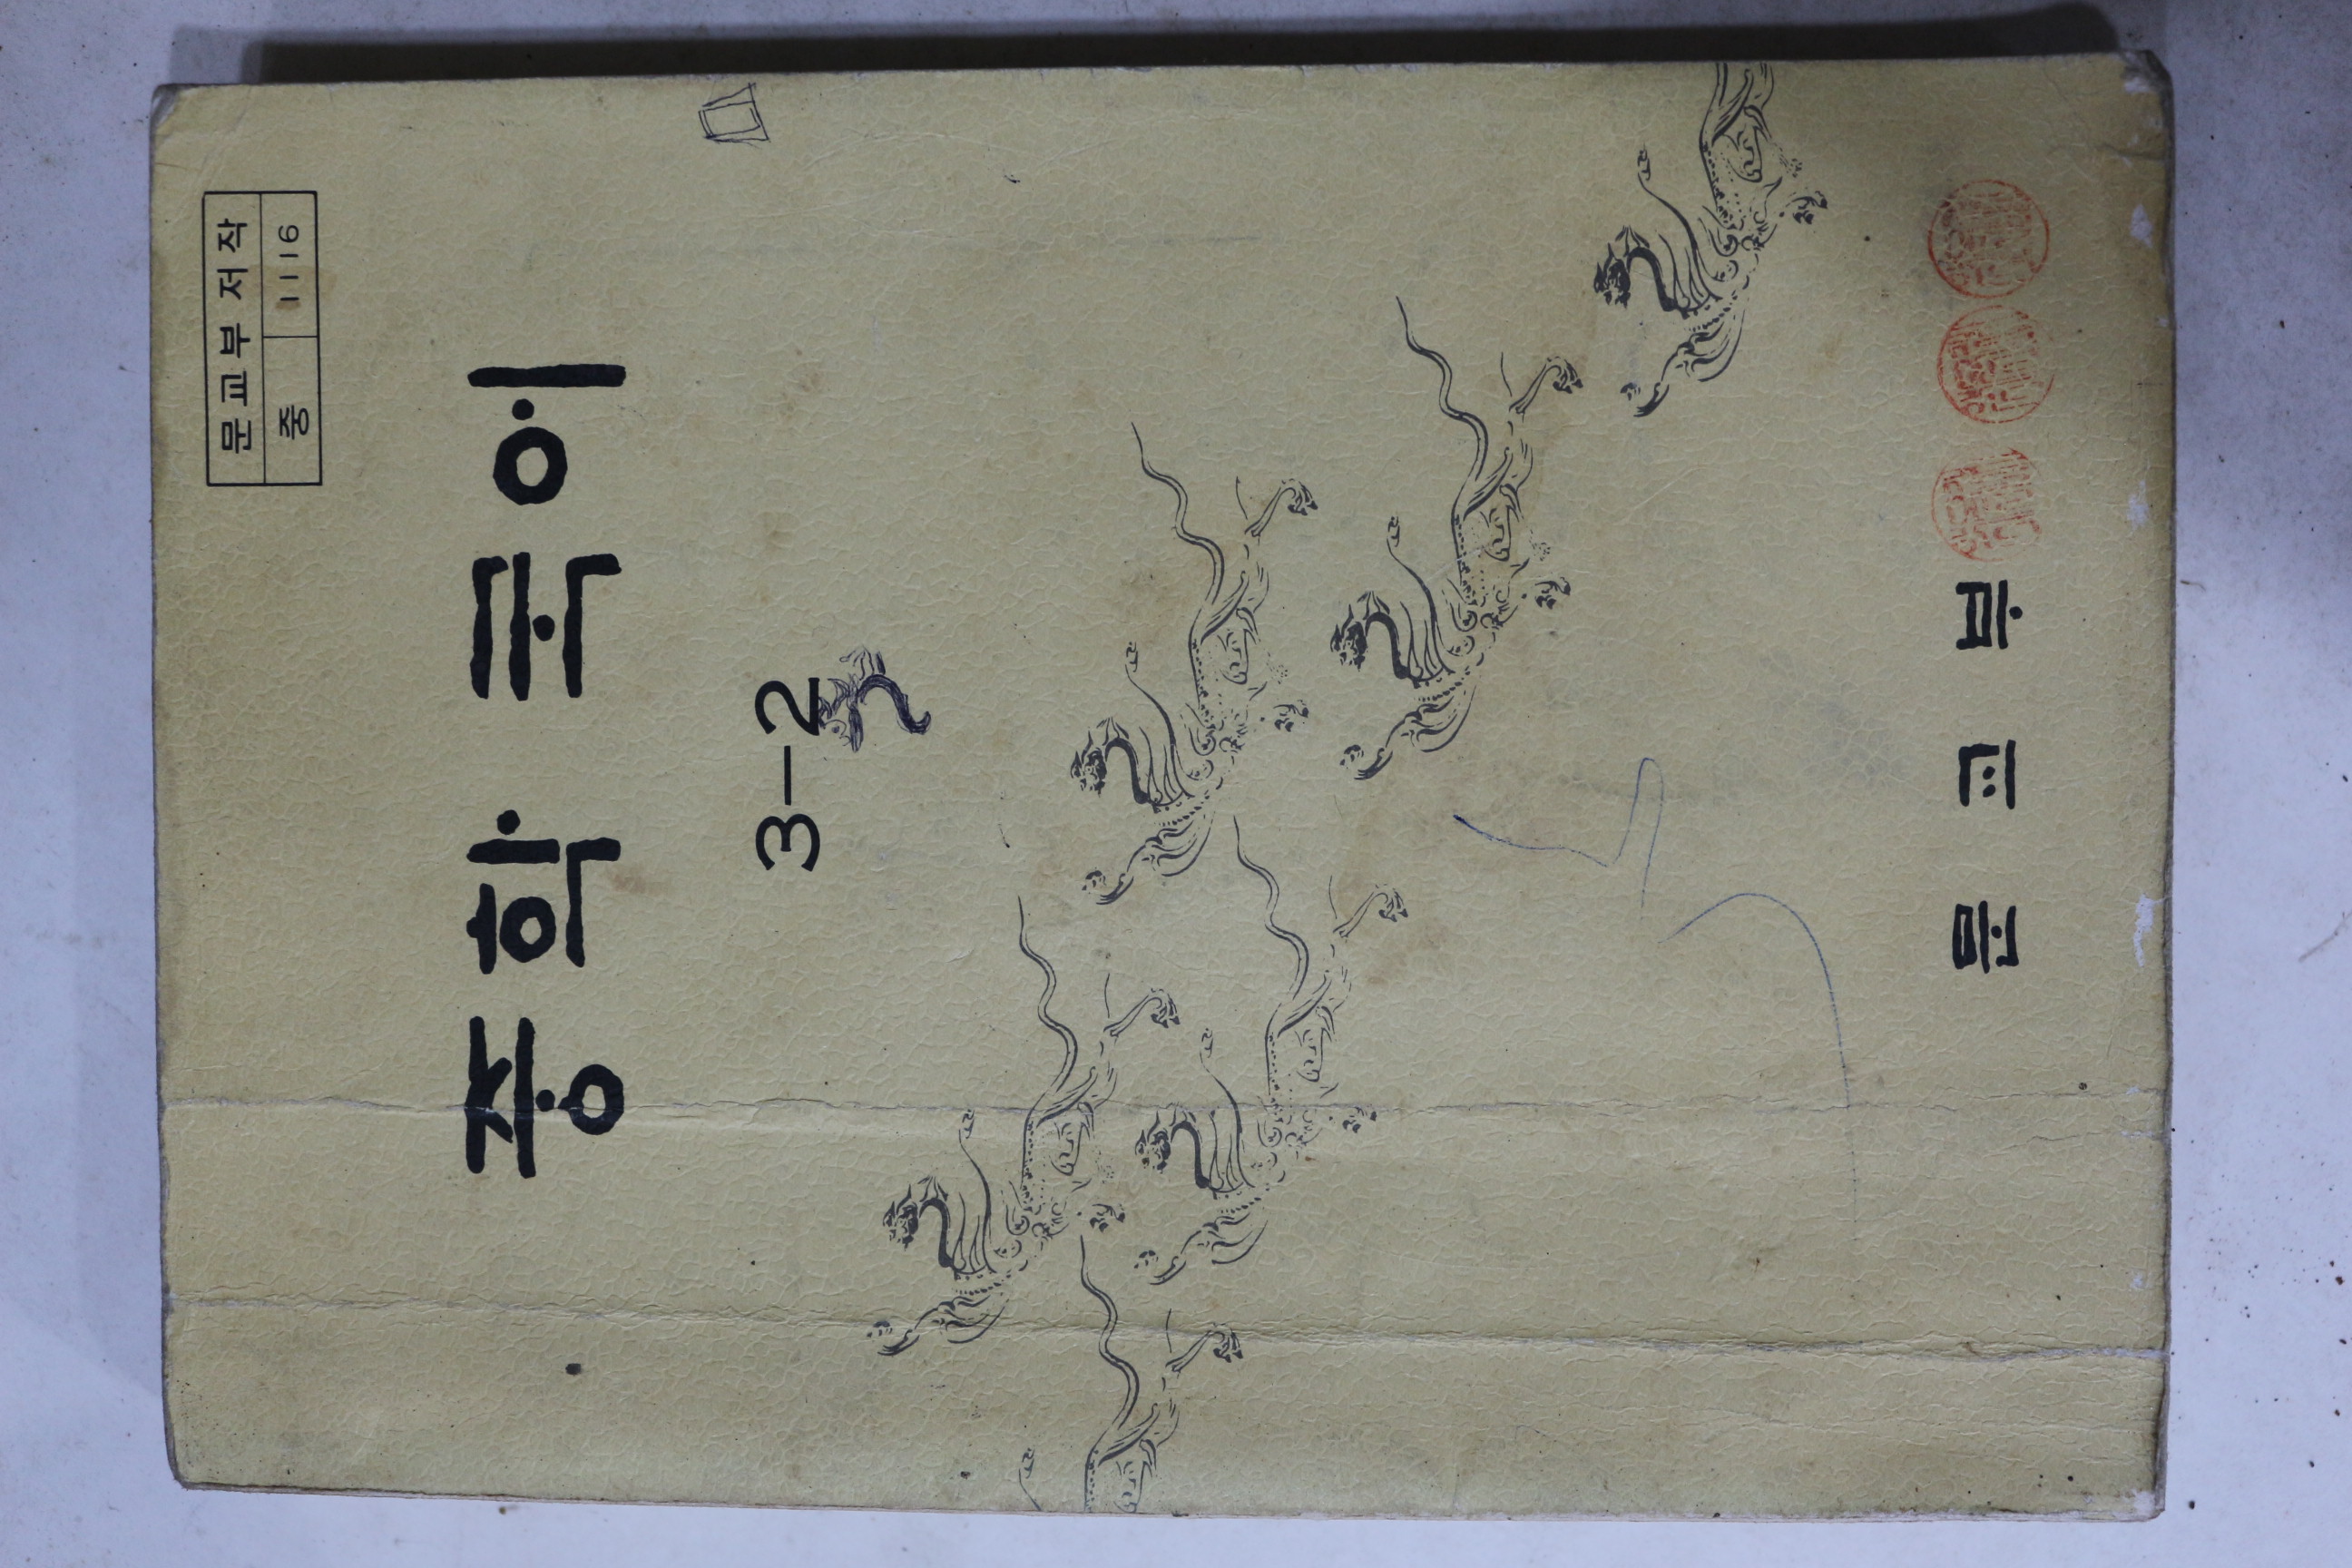 문교부 저작
중 1116
중학 국어
3-2
문교부